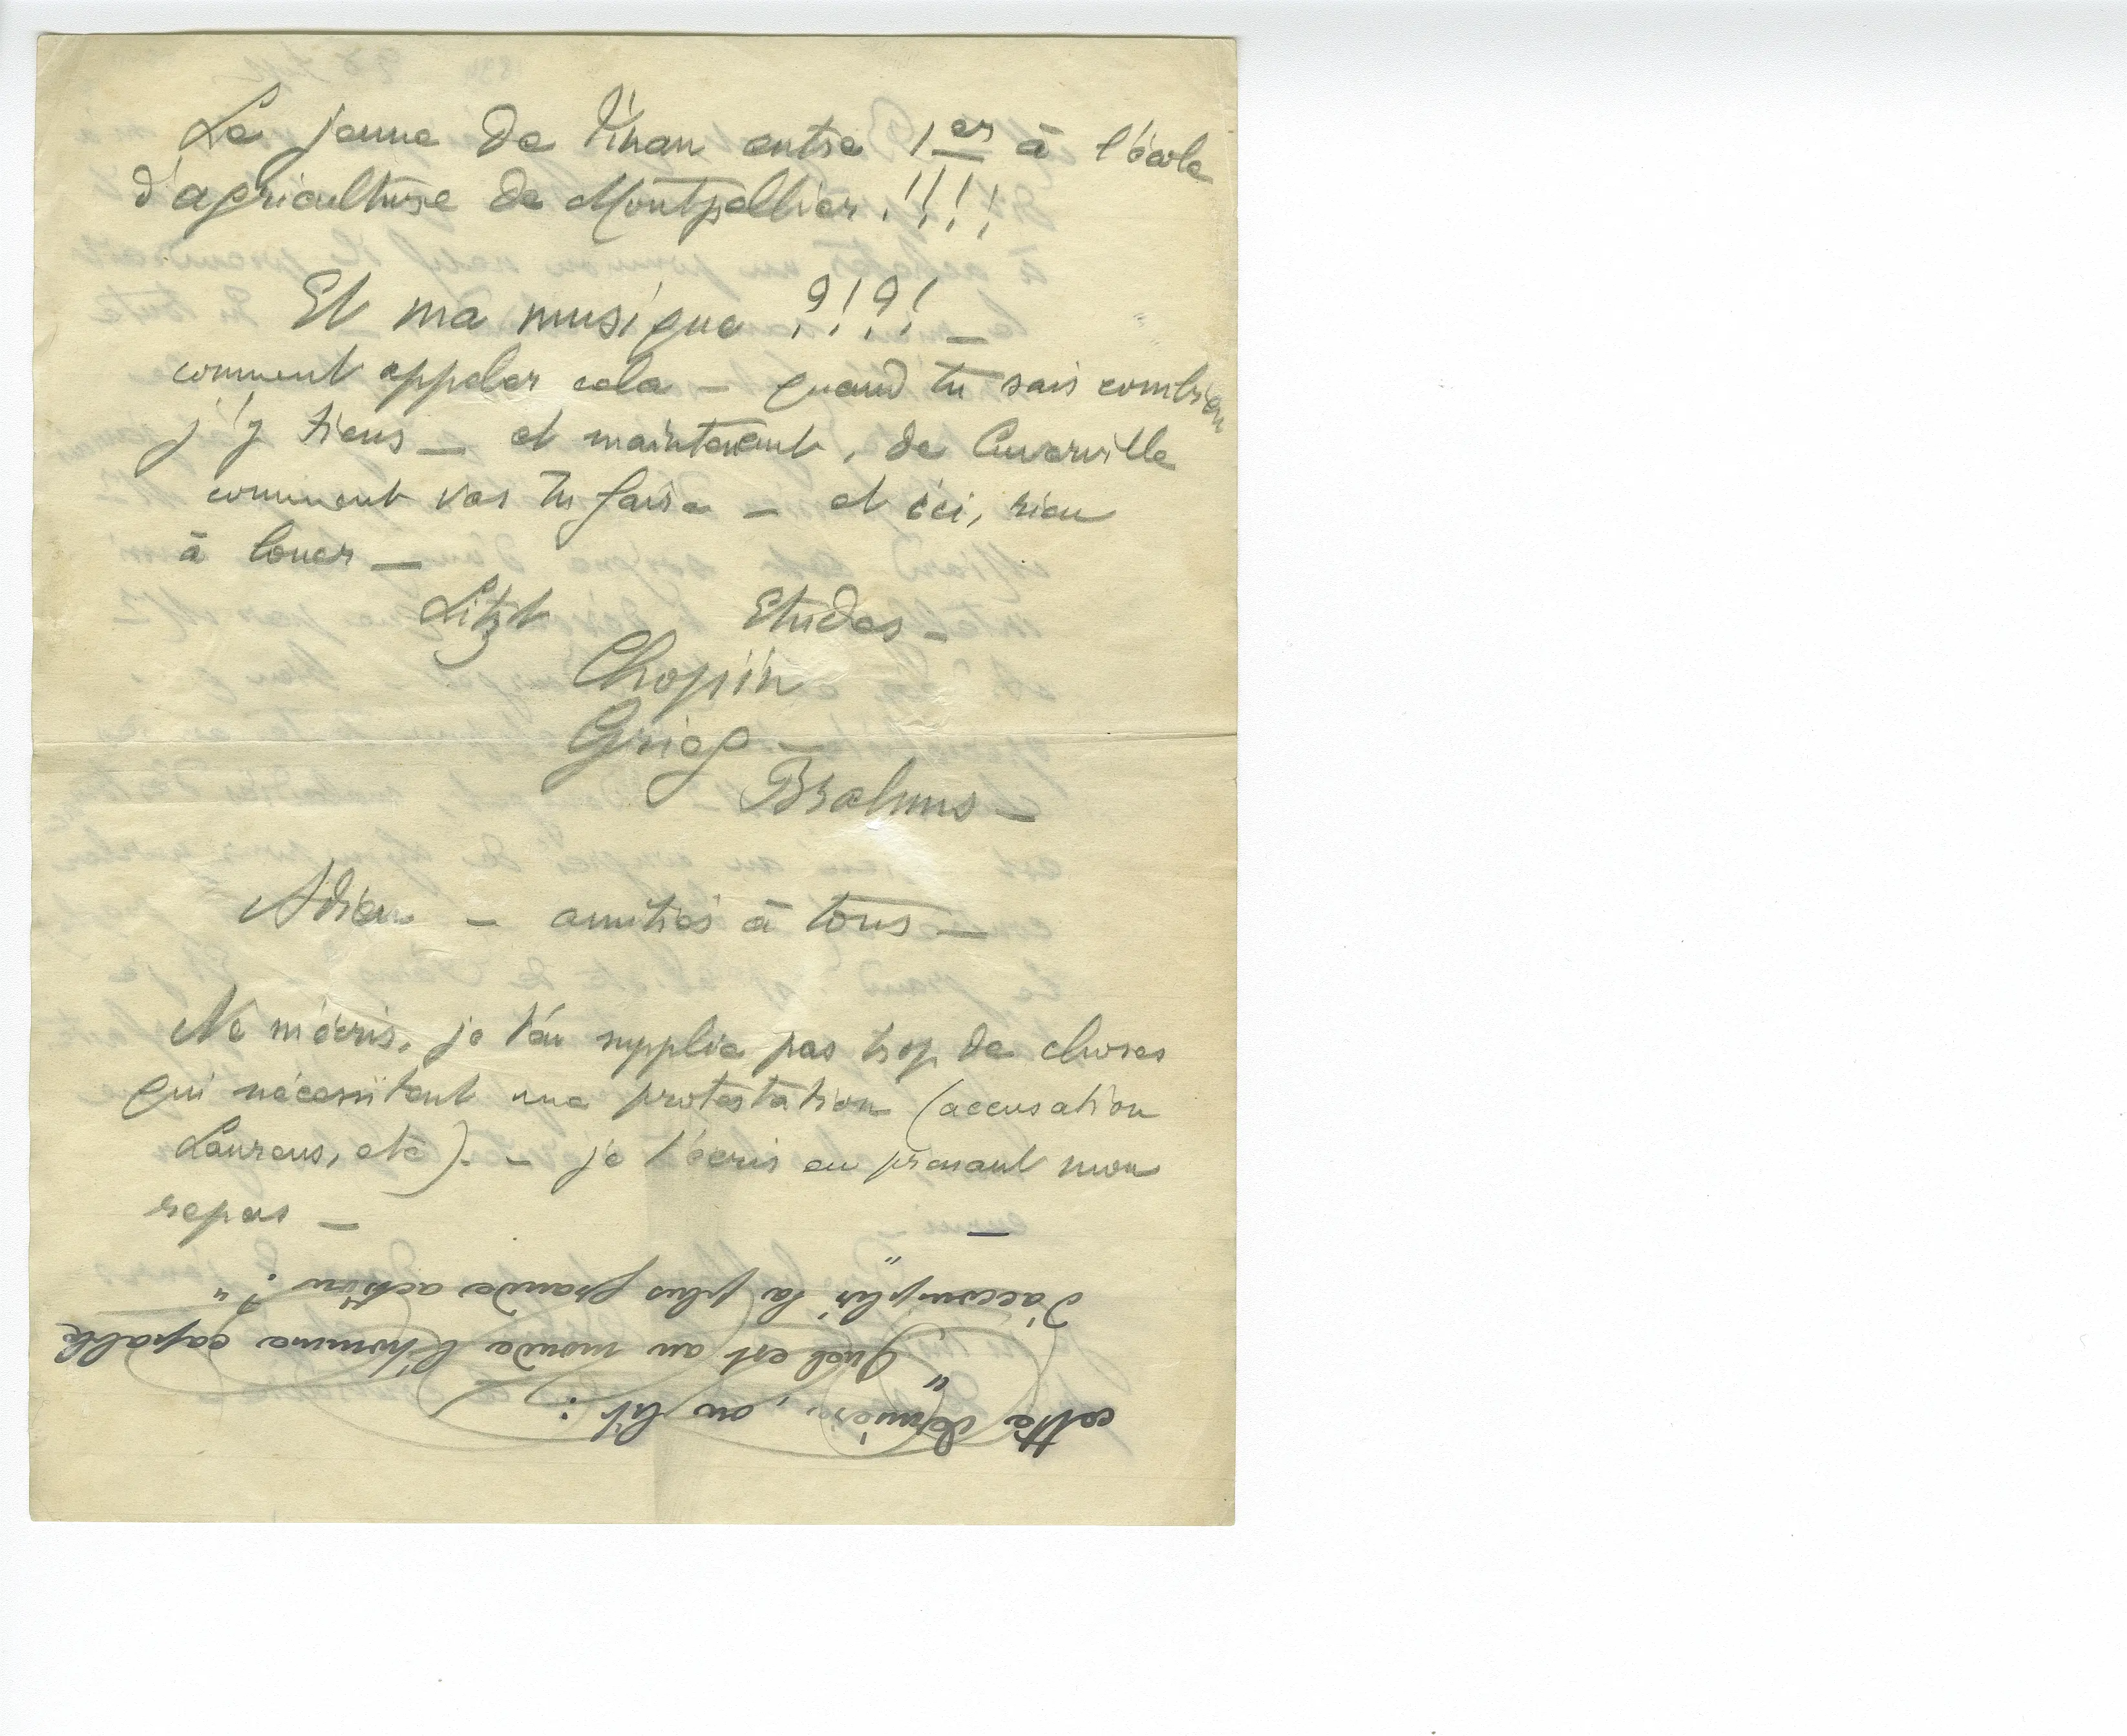 Le jeune de Tinan entre 1er à l'école
d'agriculture de Montpellier.!!!!
Et ma musique ?!?! _
comment appeler cela – quand tu sais combien
j'y tiens – et maintenant, de Cuverville
comment vas tu faire – et ici, rien
à louer –
Litzt Etudes –
Chopin
Grieg –
Brahms –
Adieu – amitiés à tous –
Ne m'écris, je t'en supplie pas trop de choses
qui nécessitent une protestation (accusation
Laurens, etc). – je t'écris en prenant mon
repas –
cette dernière, on lit :
"Quel est au monde l'homme capable
d'accomplir "la plus grande action" ? "